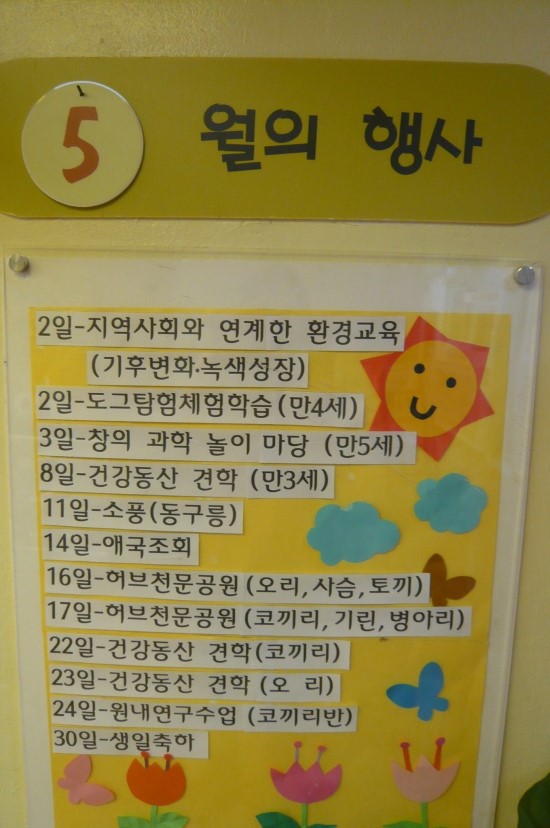 5 월의 행사
2일-지역사회와 연계한 환경교육
(기후변화·녹색성장)
2일-도그탐험체험학습(만4세)
3일-창의 과학 놀이 마당 (만5세)
8일-건강동산 견학 (만3세)
11일-소풍(동구릉)
14일-애국조회
16일-허브천문공원(오리,사슴,토끼)
17일-허브천문공원(코끼리,기린,병아리)
22일-건강동산 견학(코끼리)
23일-건강동산 견학 (오 리)
24일-원내연구수업 (코끼리반)
30일-생일축하